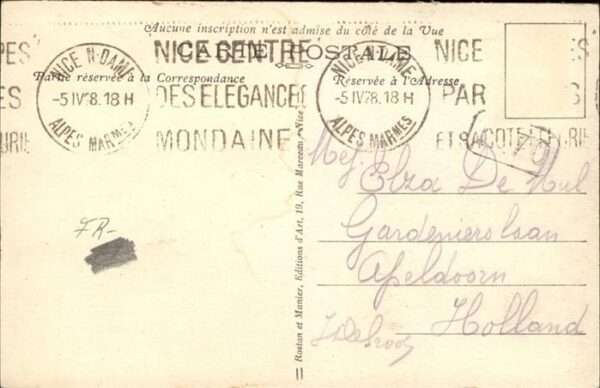 Aucune inscription n'est admise du côté de la Vue
CARTE POSTALE
Partie réservée à la Correspondance
Réservée à l'Adresse
NICE N-DAME
-5 IV 28. 18 H
ALPES MARMES
NICE CENTRE
DES ELEGANCES
MONDAINE
NICE N-DAME
-5 IV 28. 18 H
ALPES MARMES
NICE
PAR
ET SA COTE FLEURIE
FR-
Mej. Elza De Mul
Gardenierslaan
Apeldoorn
Holland
Rostan et Munier, Editions d'Art, 19, Rue Marceau, Nice
11